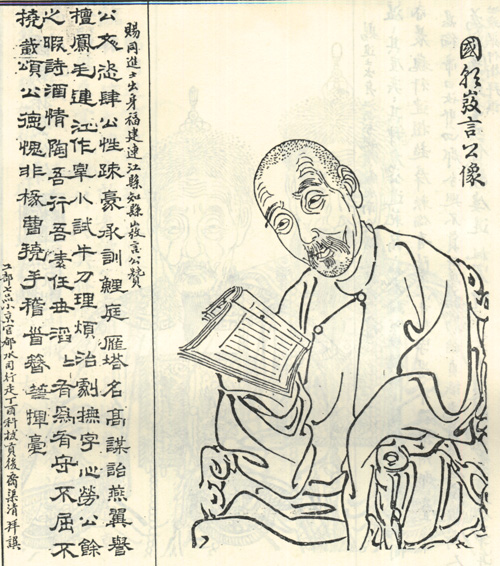 國言公像
賜同進士出身福建連江縣知縣言公贊
公文恣肆公性疎豪承訓鯉庭雁塔名高謀詒燕翼譽
擅鳳毛連江作宰小試牛刀理煩治劇撫字心勞公餘
之暇詩酒情陶吾行吾素任世滔〻有爲有守不屈不
撓載頌公德愧非椽曹手稽首揮毫
工部七品小京官都水司行走丁酉科拔貢後裔清拜譔